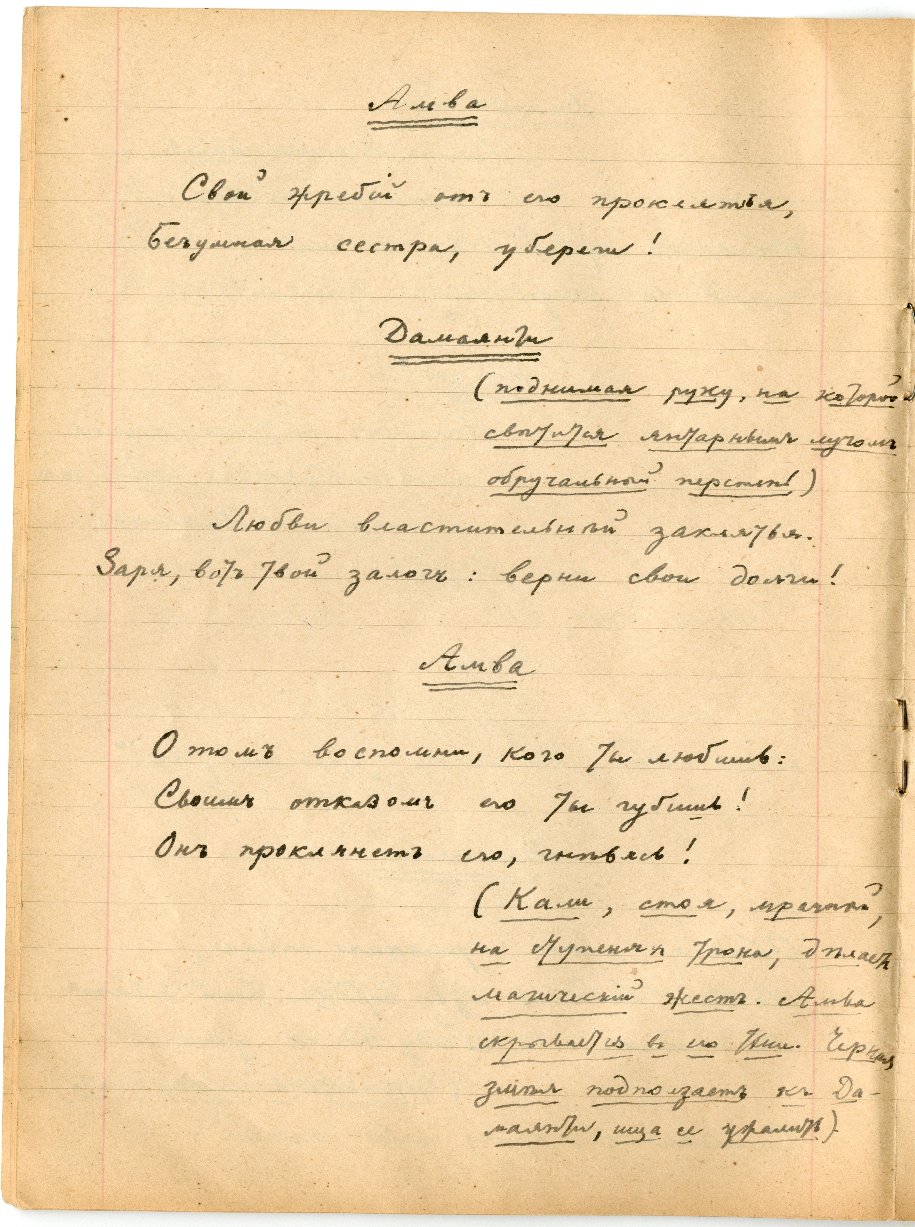 Амва
Свой жребій отъ его проклятья,
Безумная сестра, убереги!
Дамаянти
(поднимая руку, на которой
свѣтится янтарнымъ лучомъ
обручальный перстень)
Любви властительнѣй заклятья.
Заря, вотъ твой залогъ: верни свои долги!
Амва
О томъ воспомни, кого ты любишь:
Своимъ отказомъ его ты губишь!
Онъ проклянетъ его, гнѣвясь!
(Кали, стоя, мрачный,
на ступеняхъ трона, дѣлаетъ
магическій жестъ. Амва
скрывается въ его тѣни. Черная
змѣя подползаетъ къ Да-
маянти, ища ее ужалить)